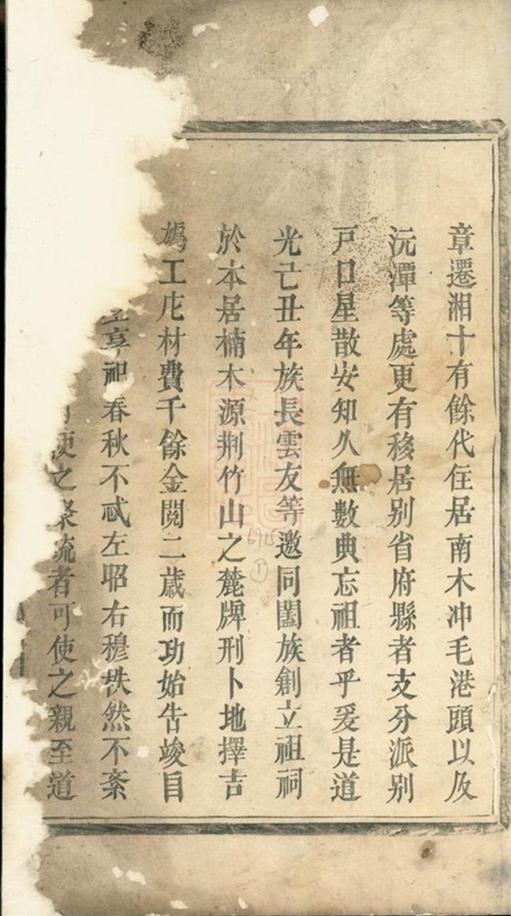 章遷湘十有餘代住居南木冲毛港頭以及
沅潭等處更有移居别省府縣者支分派别
戸口星散安知久無數典忘祖者乎爰是道
光己丑年族長雲友等邀同闔族創立祖祠
於本居楠木源荆竹山之麓牌刑卜地擇吉
鳩工庀材費千餘金閲二歳而功始告竣自
享祀春秋不忒左昭右穆秩然不紊
之疎者可使之親至道